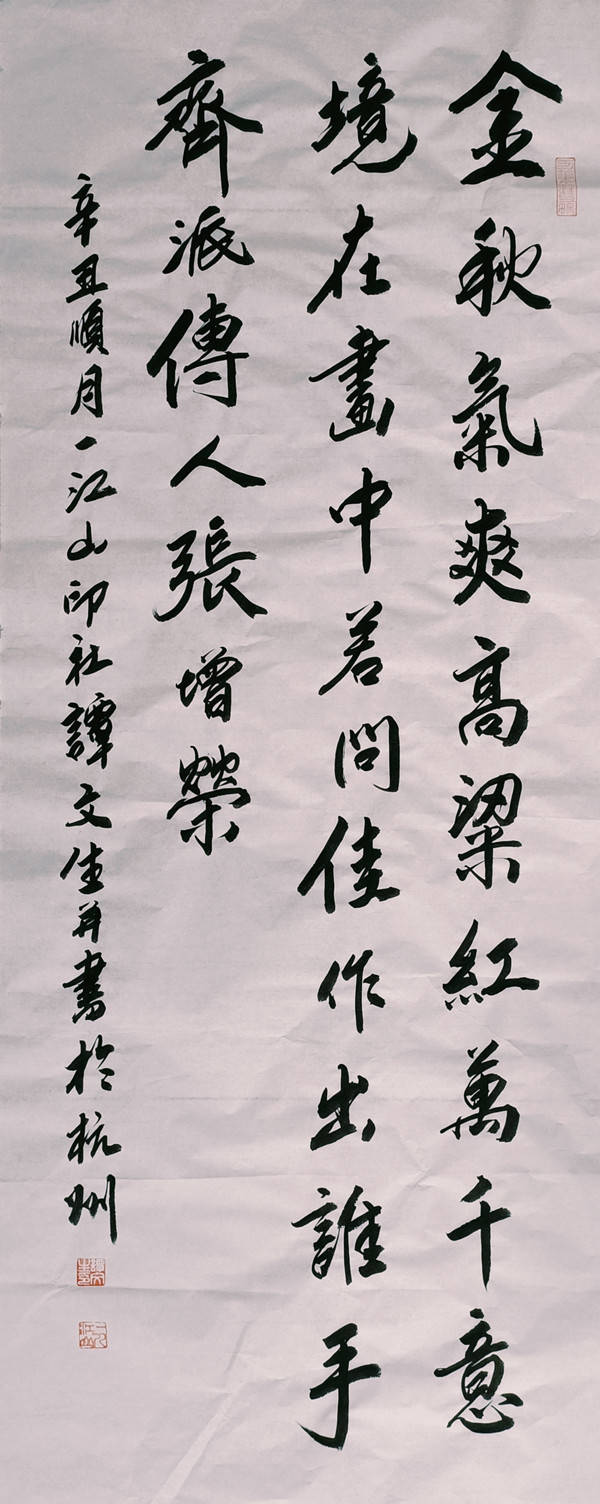 金秋氣爽高粱紅萬千意
境在畫中若問佳作出誰手
齊派傳人張增榮
辛丑順月一江山印社譚文生並書於杭州